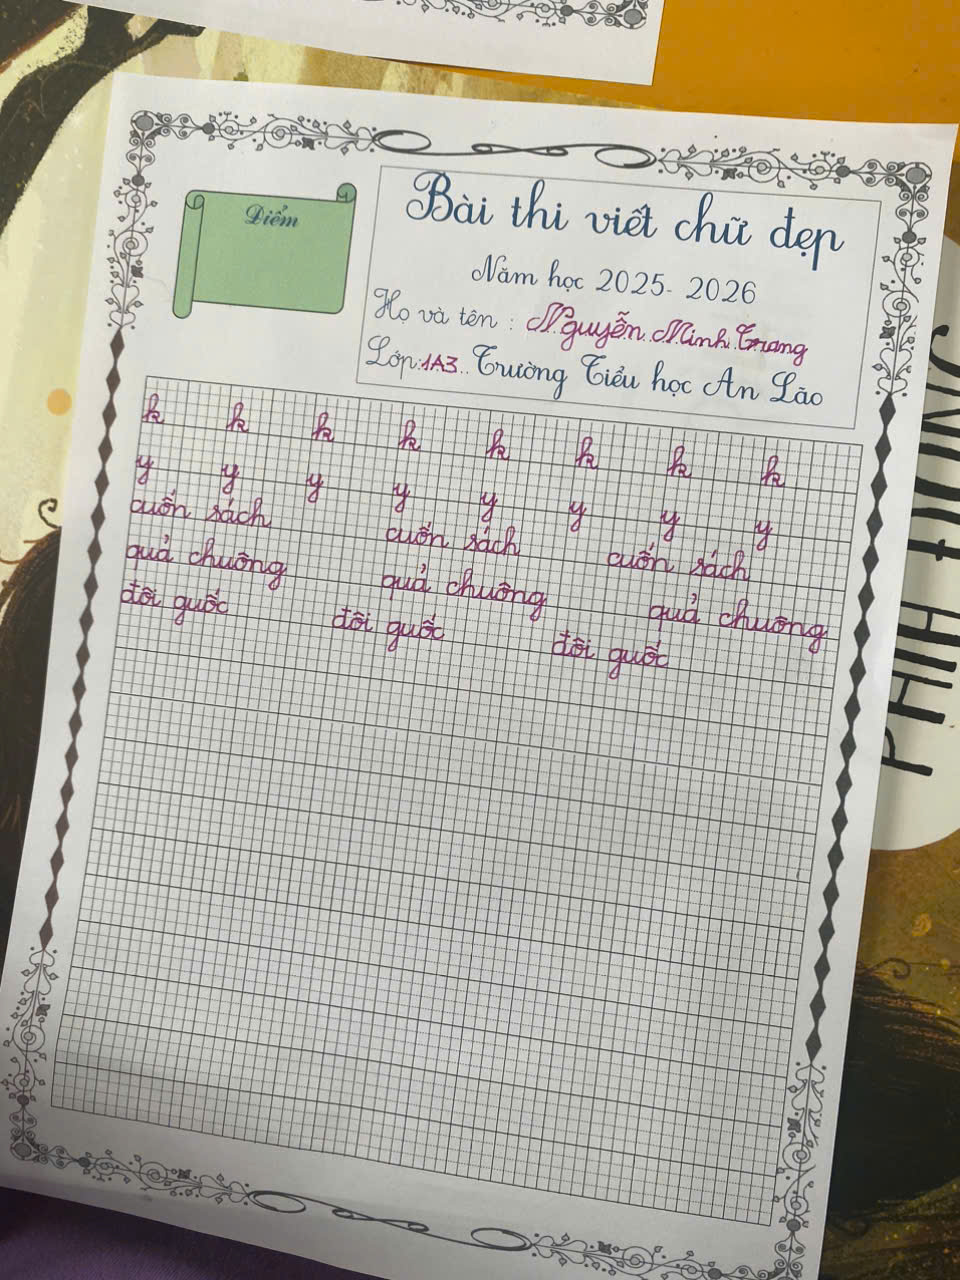 Điểm
Bài thi viết chữ đẹp
Năm học 2025-2026
Họ và tên : Nguyễn Minh Trang
Lớp: 1A3.. Trường Tiểu học An Lão
k k k k k k k k
y y y y y y y y
cuốn sách cuốn sách cuốn sách
quả chuông quả chuông quả chuông
đôi guốc đôi guốc đôi guốc
PHÍA